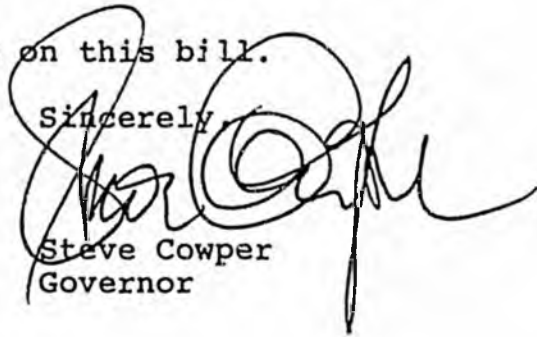 on this bill.
Sincerely,
Steve Cowper
Governor